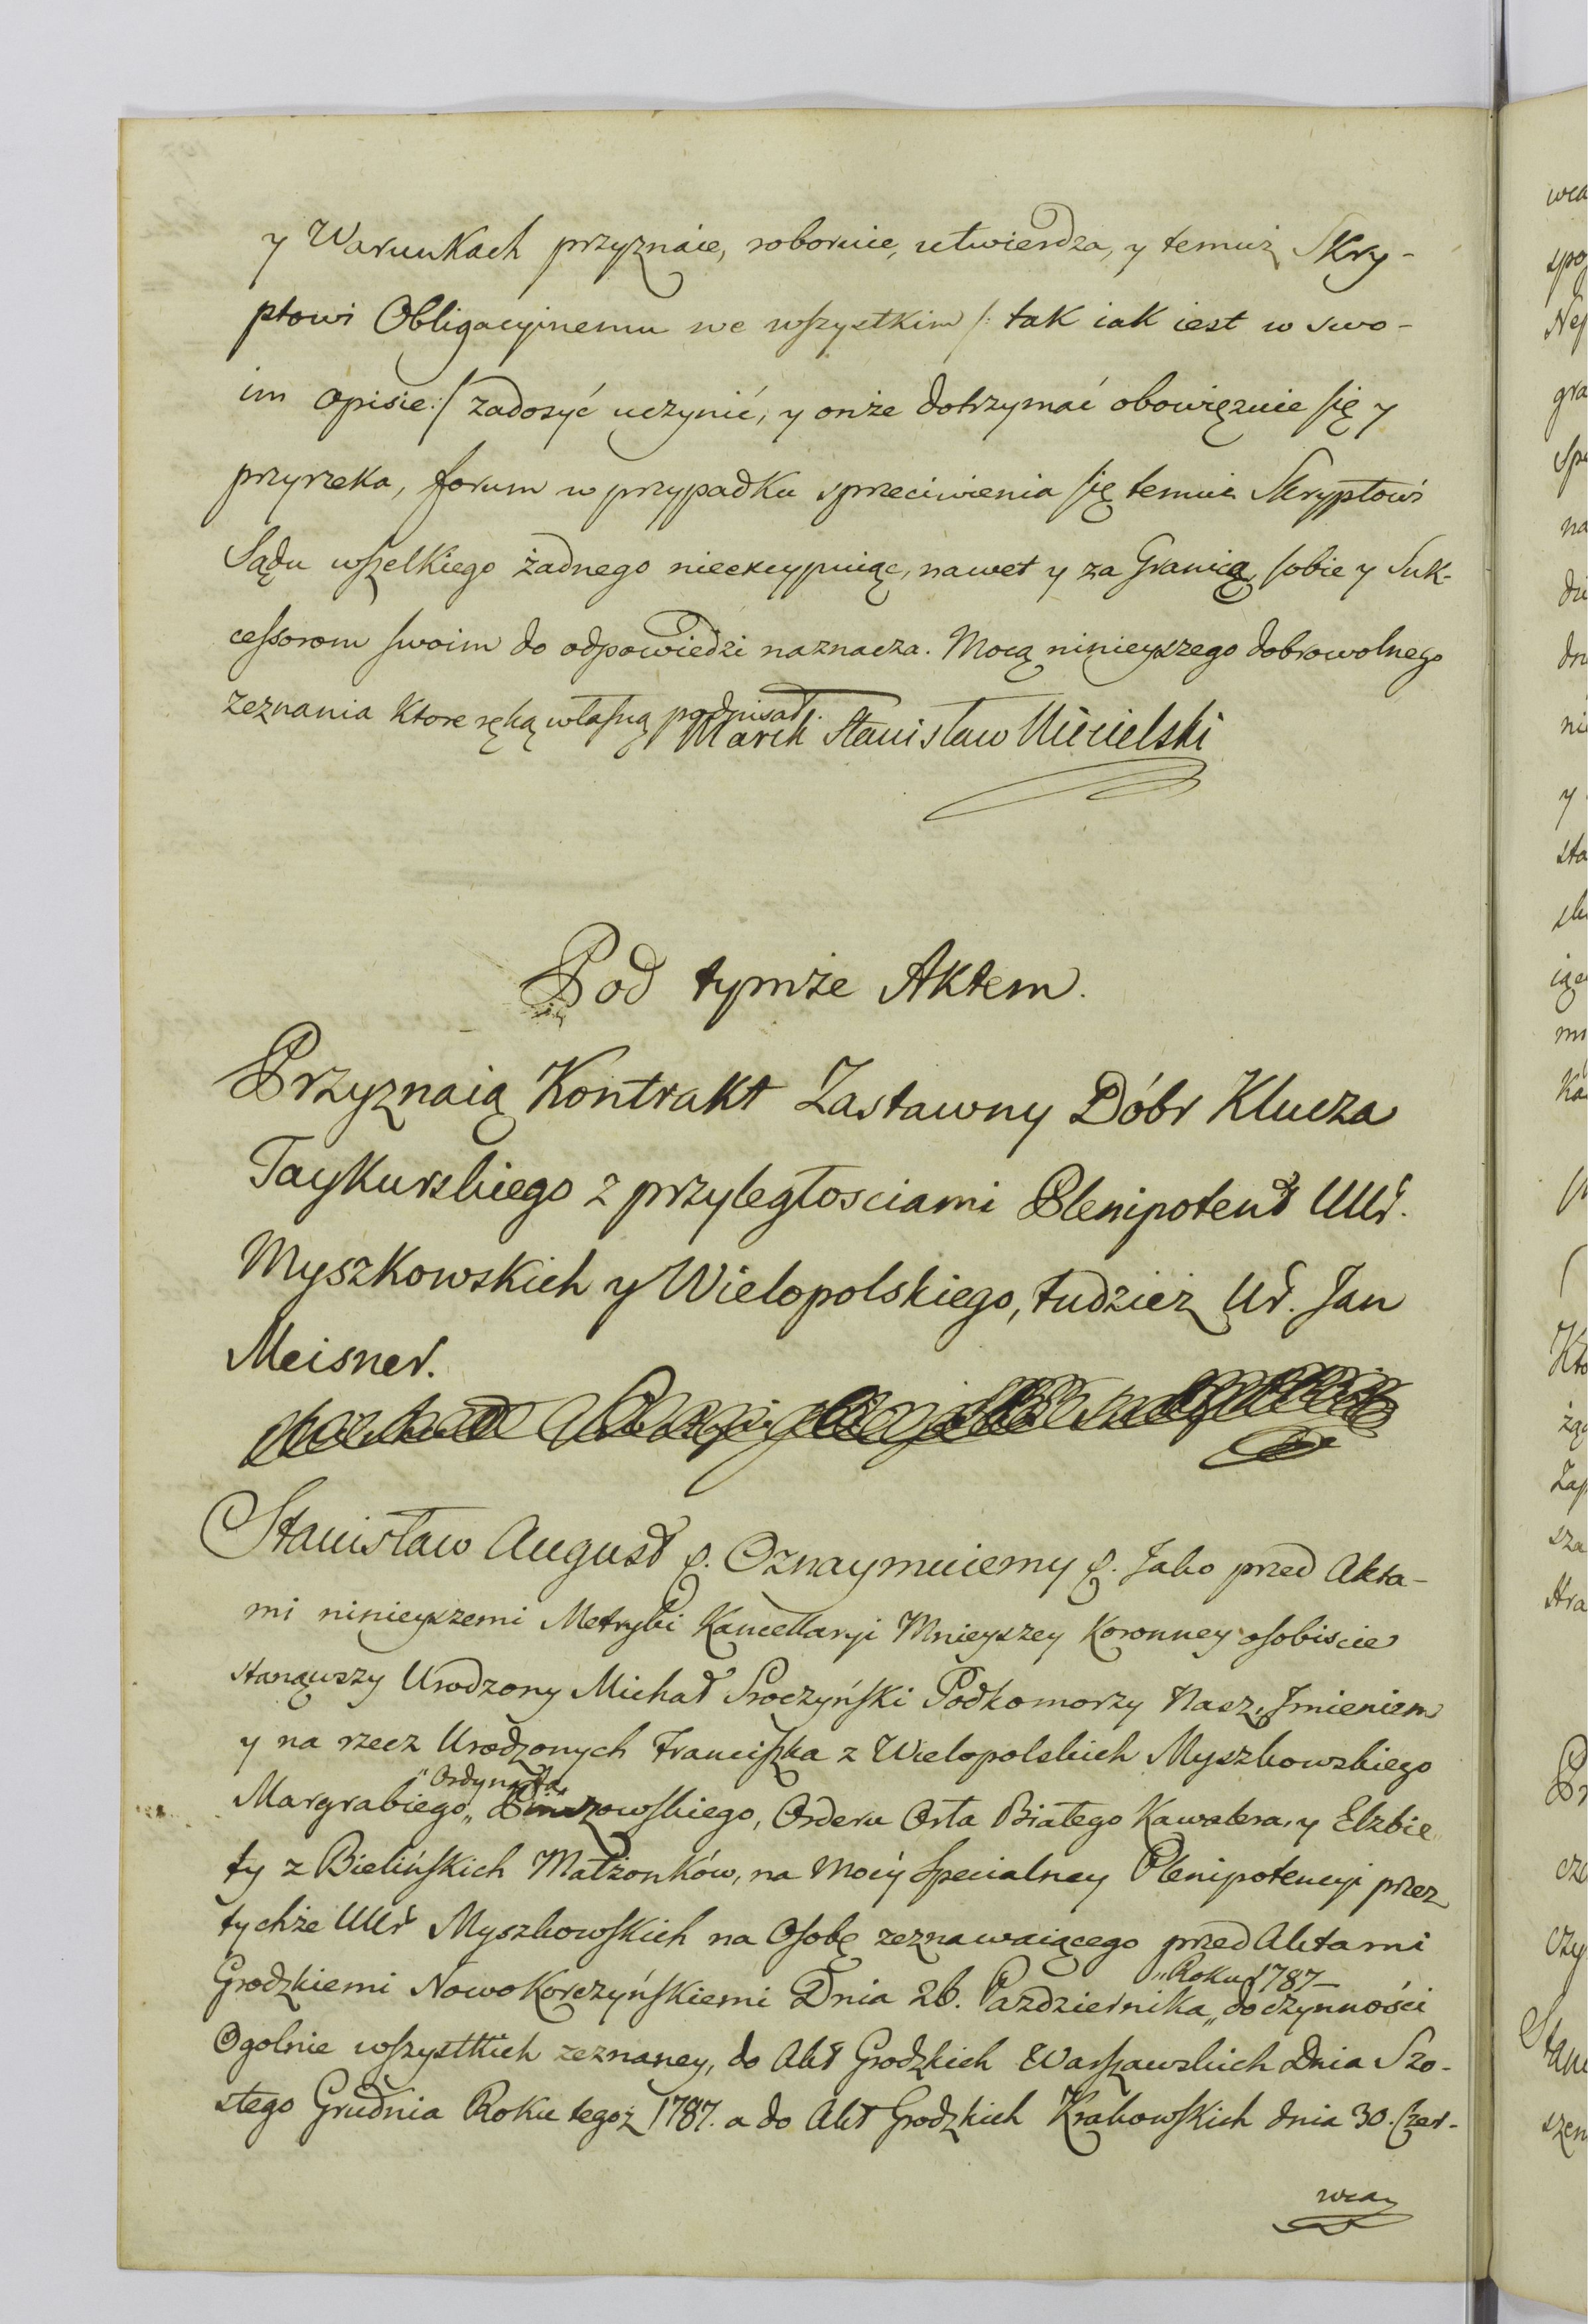 y Warunkach przyznaie, roboruie, utwierdza, y temuż Skry-
ptowi Obligacyinemu we wszystkim /: tak iak iest w swo-
im opisie:/ zadosyć uczynić, y onże dotrzymać obowięzuie się y
przyrzeka, forum w przypadku sprzeciwienia się temuż Skryptowi
Sądu wszelkiego żadnego nieexcypuiąc, nawet y za Granicą, sobie y Suk-
cessorom swoim do odpowiedzi naznacza. Mocą ninieyszego dobrowolnego
zeznania Ktore ręką własną podpisał.
Marek Stanisław
Pod tymże Aktem.
Przyznaią Kontrakt Zastawny Dóbr Klucza
Taykurskiego z przyległosciami Plenipotent UUr.
Myszkowskich y Wielopolskiego, tudzież Ur. Jan
Meisner.
Stanisław August &. Oznaymuiemy &. Jako przed Akta-
mi ninieyszemi Metryki Kancellaryi Mnieyszey Koronney osobiscie
stanąwszy Urodzony Michał Sroczyński Podkomorzy Nasz, Imieniem
y na rzecz Urodzonych Franciszka z Wielopolskich Myszkowskiego
Margrabiego „Ordynata„ Pinczowskiego, Orderu Orła Białego Kawalera, y Elzbie-
ty z Bielińskich Małżonków, na Mocy specialney Plenipotencyi przez
tychże UUr Myszkowskich na Osobę zeznawaiącego przed Aktami
Grodzkiemi NowoKorczyńskiemi Dnia 26. Pazdziernika „Roku 1787„ do czynności
Ogolnie wszystkich zeznaney, do Akt Grodzkich Warszawskich Dnia Szo-
stego Grudnia Roku tegoż 1787. a do Akt Grodzkich Krakowskich dnia 30. Czer-
wca